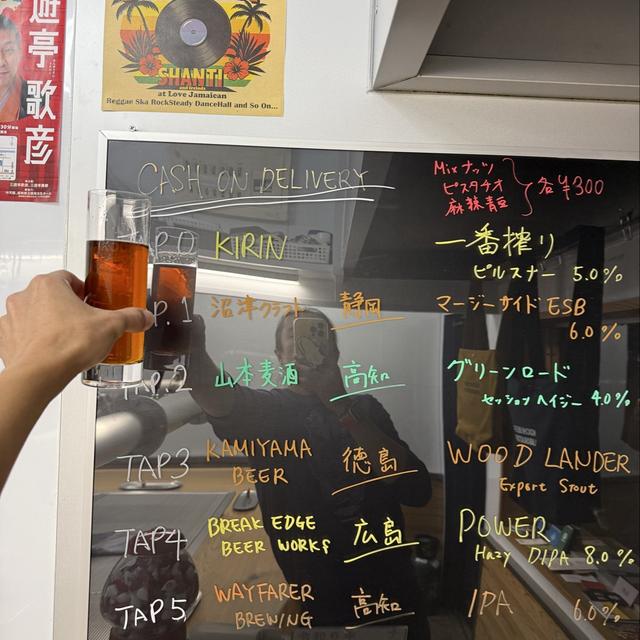 遊亭
歌彦
SHANTI
and friends
at Love Jamaican
Reggae Ska RockSteady DanceHall and So On...
CASH ON DELIVERY
Mixナッツ
ピスタチオ
麻辣青豆
各¥300
P.0 KIRIN 一番搾り
ピルスナー 5.0%
P.1 沼津クラフト 静岡 マージーサイド ESB
6.0%
TAP.2 山本麦酒 高知 グリーンロード
セッションヘイジー 4.0%
TAP3 KAMIYAMA BEER 徳島 WOOD LANDER
Export Stout
TAP4 BREAK EDGE BEER WORKS 広島 POWER
Hazy DIPA 8.0%
TAP5 WAYFARER BREWING 高知 IPA 6.0%